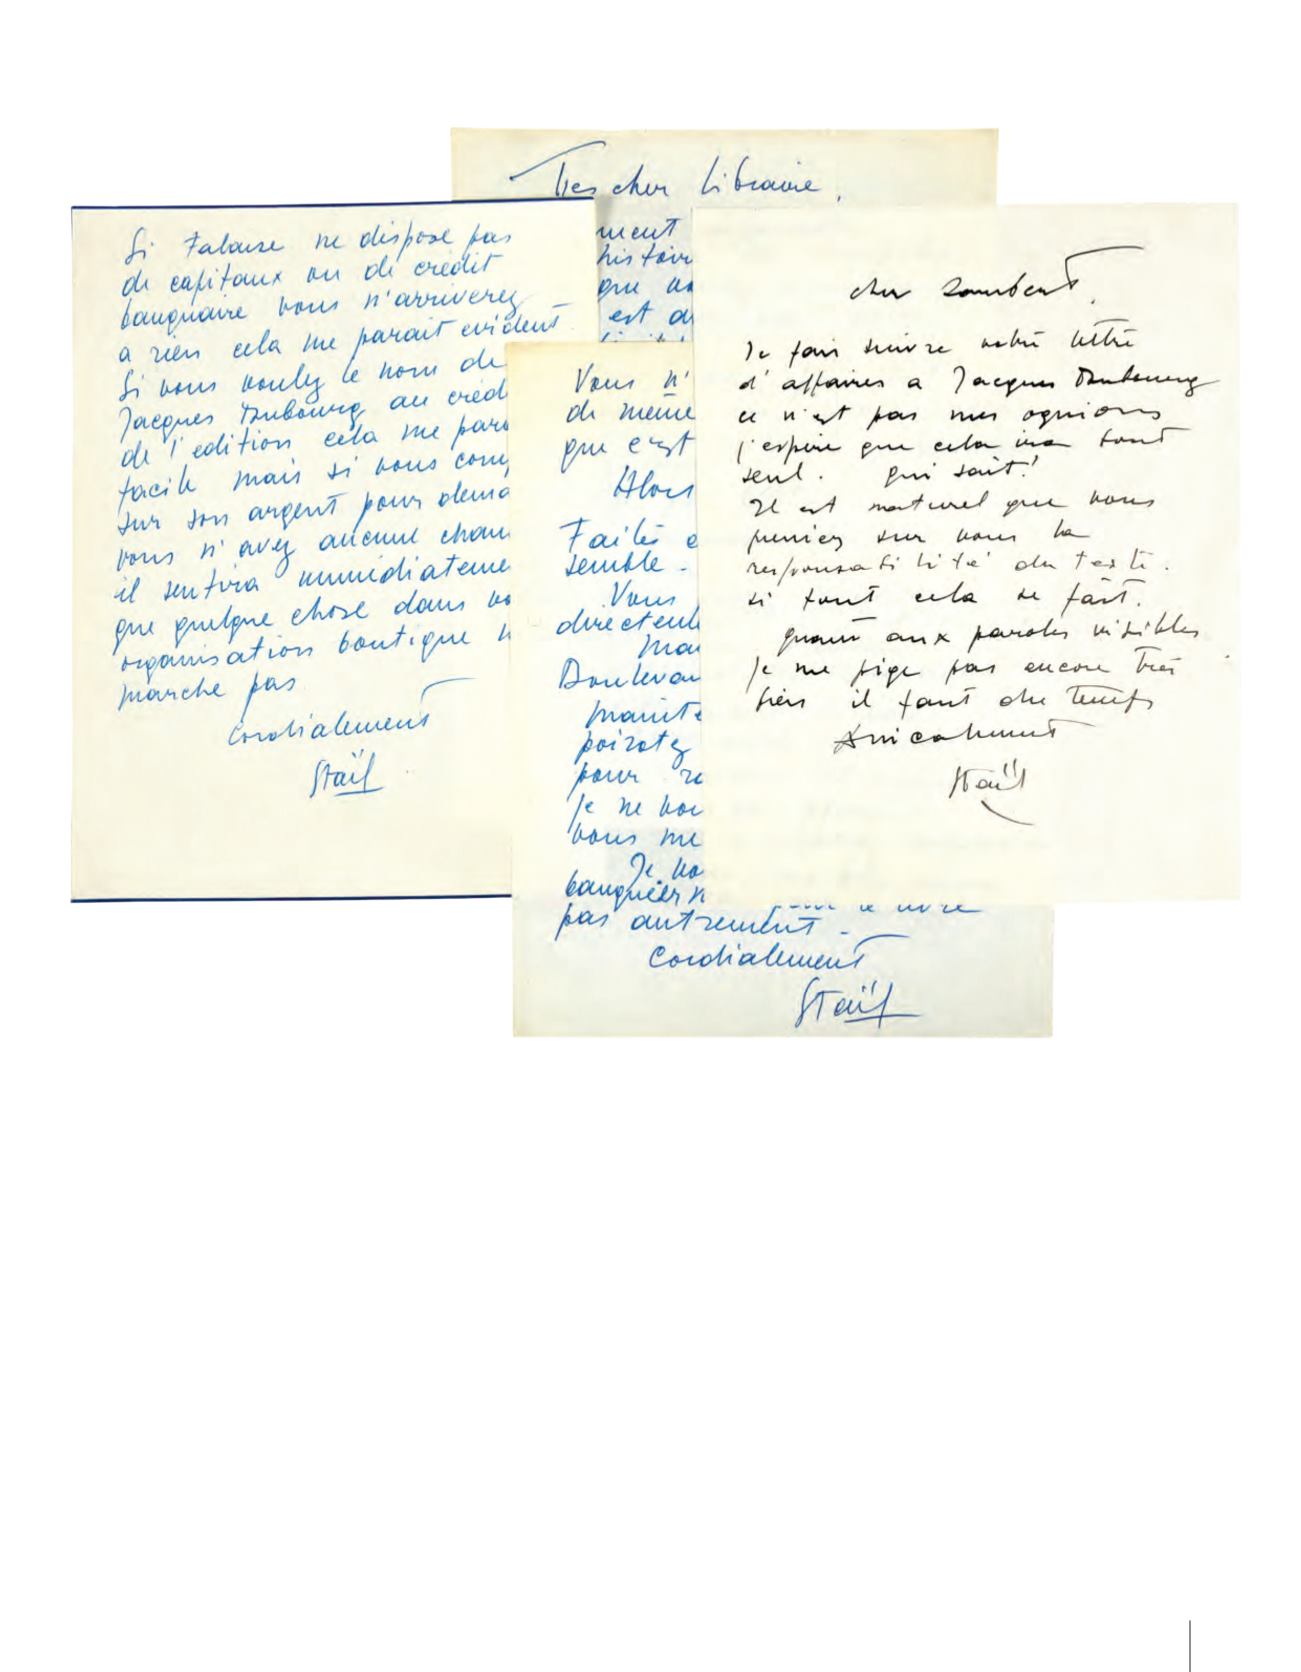 Tres cher Libraire,
ment
histoir
que vo
est d
Si Falaise ne dispose pas
de capitaux ou de crédit
banquaire vous n'arriverez
a rien cela me parait evident
Si vous voulez le nom de
Jacques Dubourg au créd
de l'edition cela me para
facile mais si vous comp
sur son argent pour dema
vous n'avez aucune chan
il sentira immédiateme
que quelque chose dans vo
organisation boutique n
marche pas
Cordialement
Staël
Vous n'
de même
que c'est
Alors
Faites e
semble.
Vous
directeu
Mai
Boulevar
Mainte
poirotez
pour re
Je ne vou
vous me
Je vo
banquier n
le livre
pas autrement.
Cordialement
Staël
cher Lambert,
Je fais suivre votre lettre
d'affaires a Jacques Dubourg
ce n'est pas mes ognions
j'espère que cela ira tout
seul. qui sait!
Il est naturel que vous
preniez sur vous la
responsabilité du texte.
si tout cela se fait.
quant aux paroles visibles
Je ne pige pas encore très
bien il faut du temps
Amicalement
Staël